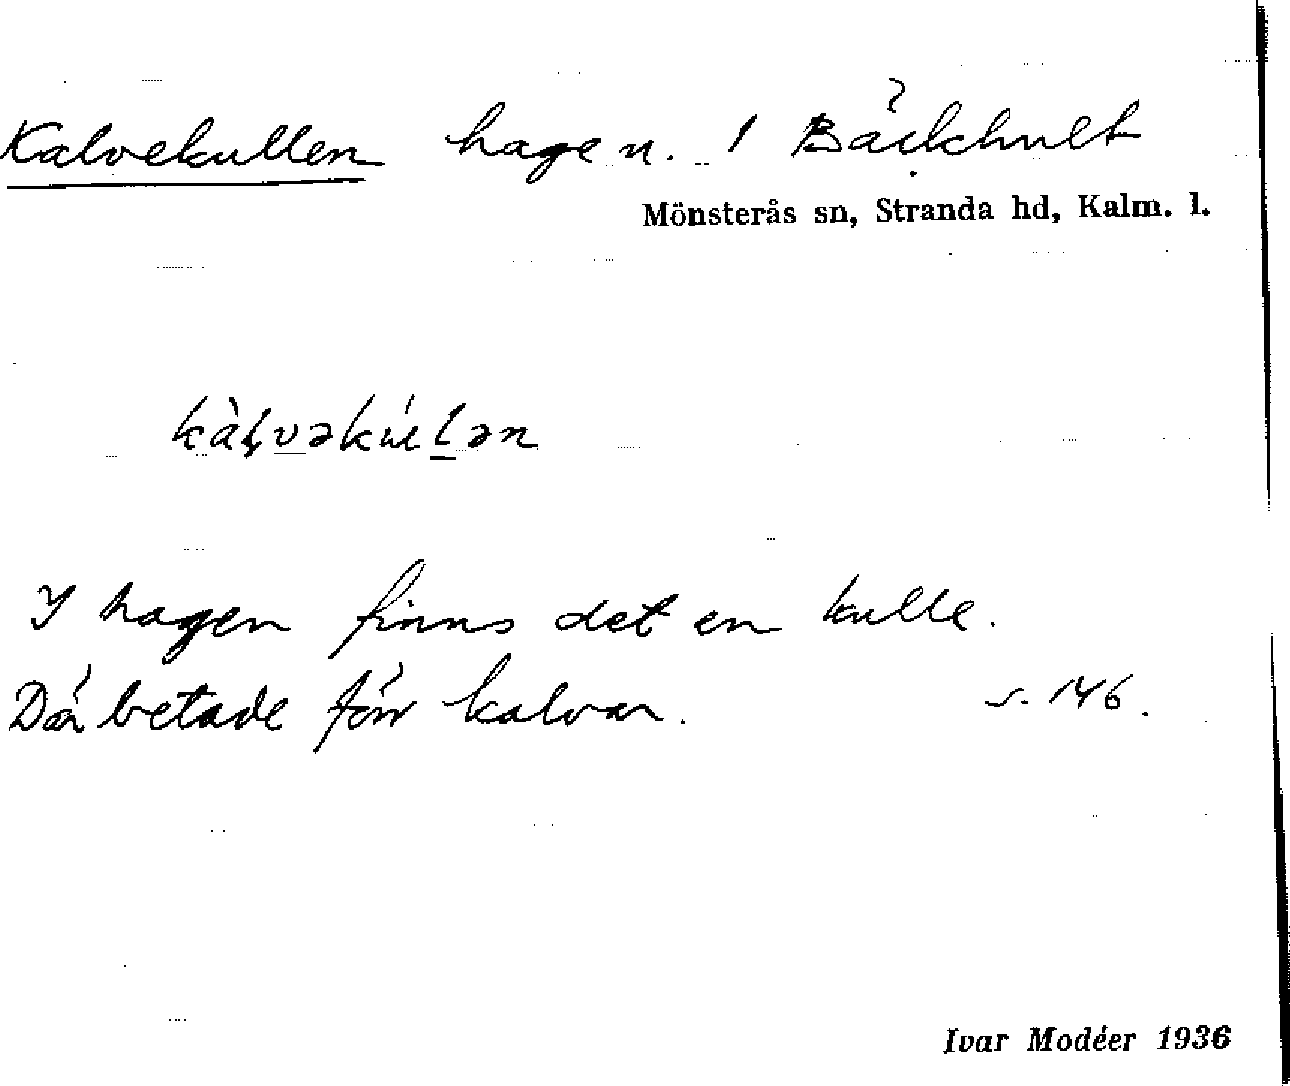 Kalvekullen hage n. 1 Bäckhult
Mönsterås sn, Stranda hd, Kalm. l.
kàḷvəkúlən
I hagen finns det en kulle.
Där betade förr kalvar. s. 146.
Ivar Modéer 1936